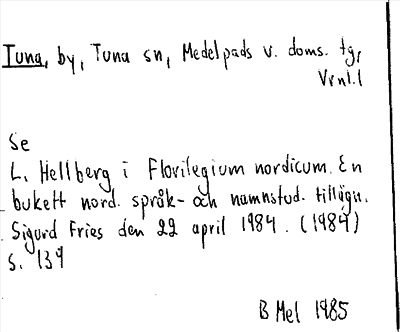 Tuna, by, Tuna sn, Medelpads v. doms. tg,
Vrnl. l
Se
L. Hellberg i Florilegium nordicum. En
bukett nord. språk- och namnstud. tillägn.
Sigurd Fries den 22 april 1984. (1984)
s. 134
B Mel 1985